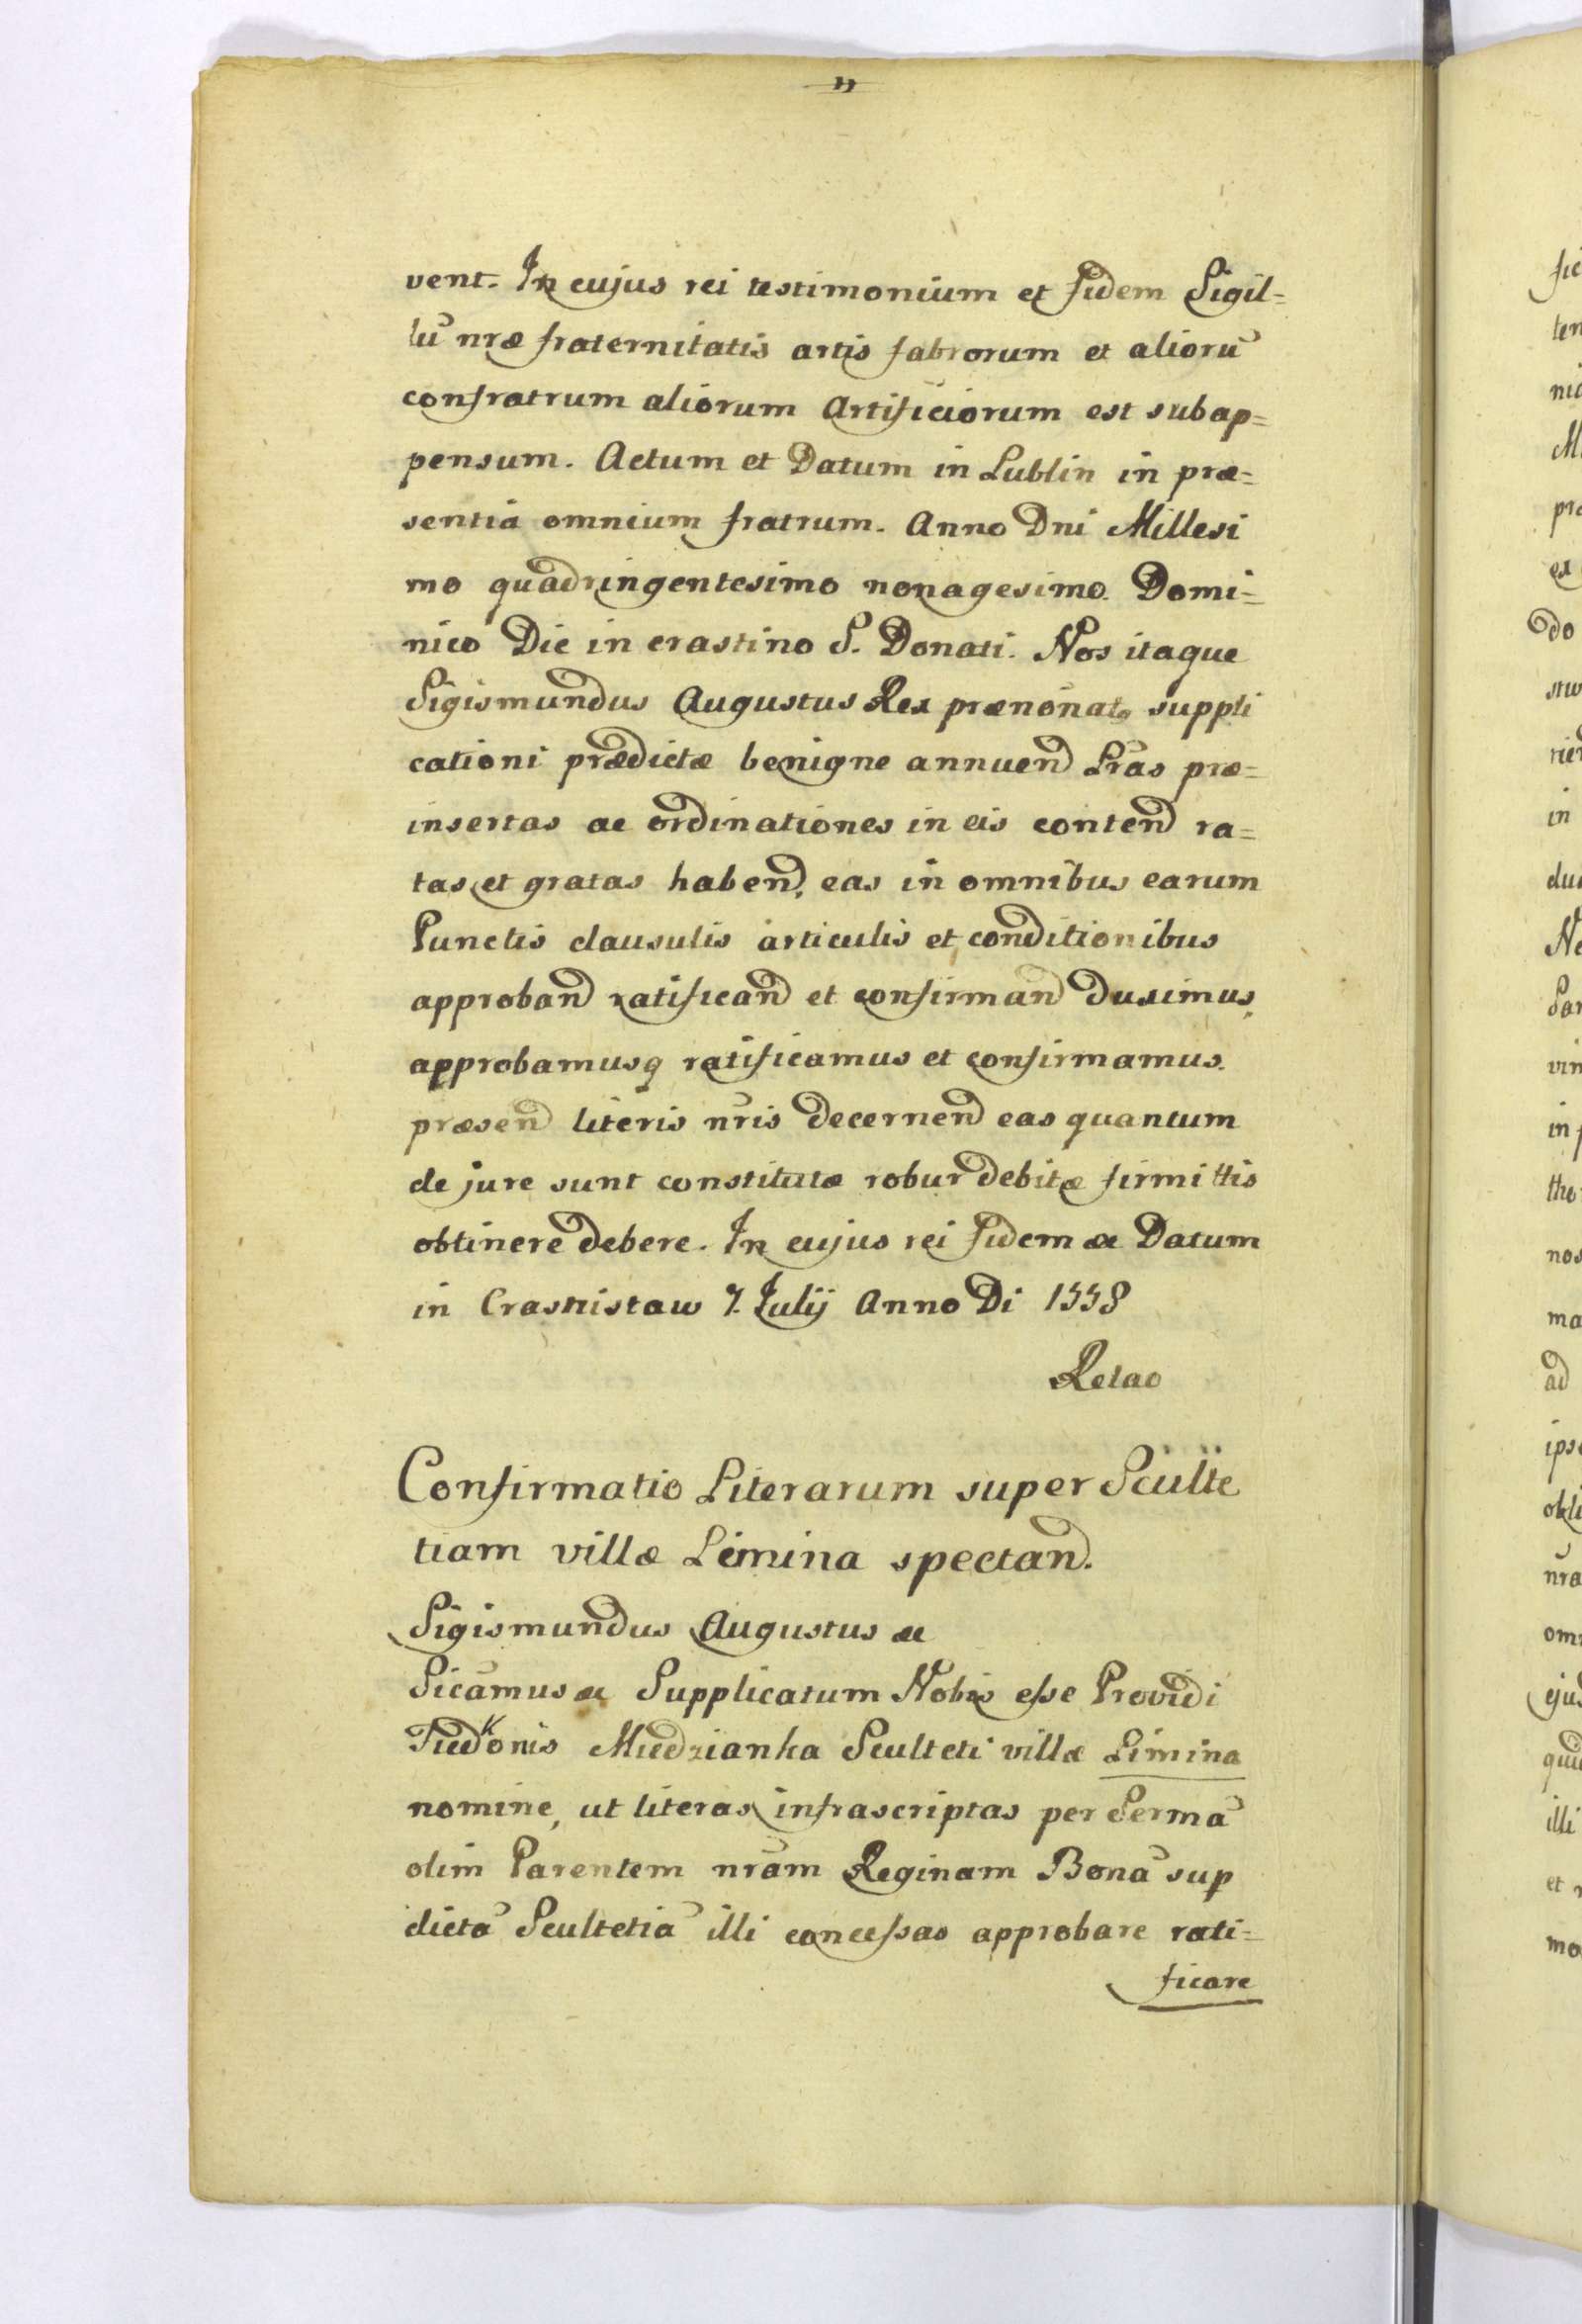 vent. In cujus rei testimonium et fidem Sigil=
lũ nræ fraternitatis artis fabrorum et aliorũ
confratrum aliorum Artificiorum est subap=
pensum. Actum et Datum in Lublin in præ=
sentia omnium fratrum. Anno Dni Millesi
mo quadringentesimo nonagesimo. Domi=
nico Die in crastino S. Donati. Nos itaque
Sigismundus Augustus Rex prænonat suppli
cationi prædictæ benigne annuend Lras præ=
insertas ac ordinationes in eis contend ra=
tas et gratas habend, eas in omnibus earum
Punctis clausulis articulis et conditionibus
approband ratificand et confirmand duximus,
approbamusq ratificamus et confirmamus.
præsend literis nris decernend eas quantum
de jure sunt constitutæ robur debitæ firmittis
obtinere debere. In cujus rei fidem &c Datum
in Crasnistaw 7. Julij Anno Di 1558
Relao
Confirmatio Literarum super Sculte
tiam villæ Limina spectand.
Sigismundus Augustus &c
Sicamus &c Supplicatum Nobis esse Providi
Fiedkonis Miedzianka Sculteti villæ Limina
nomine, ut literas infrascriptas per Sermã
olim Parentem nram Reginam Bonã sup
dictã Scultetiã illi concessas approbare rati=
ficare
fic
ten
nic
M
pro
ex
do
in
Ne
vin
in
nos
ma
ad
ips
obli
nra
omn
ejus
illi
et
mo